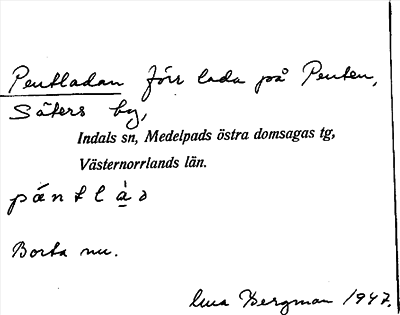 Pentladan förr lada på Penten,
Säters by,
Indals sn, Medelpads östra domsagas tg,
Västernorrlands län.
päntlà̱
Borta nu.
Bergman 1947.